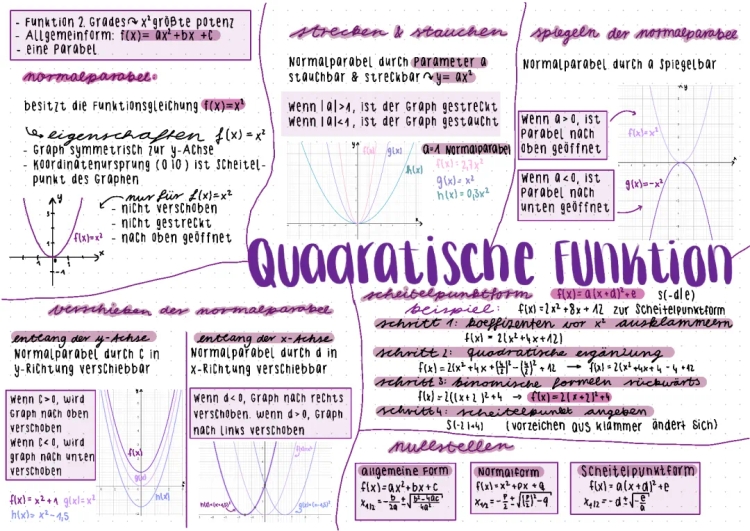 - Funktion 2. Grades ↷ x² größte potenz
- Allgemeinform: f(x) = ax² + bx + c
- eine Parabel
normalparabel:
besitzt die Funktionsgleichung f(x)=x²
↳ eigenschaften f(x) = x²
- Graph symmetrisch zur y-Achse
- Koordinatenursprung (0|0) ist Scheitel-
punkt des Graphen
nur für f(x)=x²
- nicht verschoben
- nicht gestreckt
- nach oben geöffnet
y
f(x)=x²
x
-1 1
-1
strecken & stauchen
Normalparabel durch Parameter a
stauchbar & streckbar ↷ y = ax²
Wenn |a|>1, ist der Graph gestreckt
Wenn |a|<1, ist der Graph gestaucht
a=1 Normalparabel
f(x) g(x) h(x)
f(x)= 2,7x²
g(x)= x²
h(x)= 0,3x²
spiegeln der normalparabel
Normalparabel durch a spiegelbar
Wenn a>0, ist
Parabel nach
oben geöffnet
f(x)=x²
Wenn a<0, ist
Parabel nach
unten geöffnet
g(x)=-x²
Quadratische Funktion
verschieben der normalparabel
entlang der y-Achse
Normalparabel durch c in
y-Richtung verschiebbar
Wenn c>0, wird
Graph nach oben
verschoben
Wenn c<0, wird
graph nach unten
verschoben
f(x)
g(x)
h(x)
f(x) = x²+1 g(x)= x²
h(x)= x²-1,5
entlang der x-Achse
Normalparabel durch d in
x-Richtung verschiebbar
Wenn d<0, Graph nach rechts
verschoben. Wenn d>0, Graph
nach links verschoben
scheitelpunktform f(x)= a(x+d)²+e S(-d|e)
beispiel: f(x)=2x²+8x+12 zur Scheitelpunktform
schritt 1: koeffizenten vor x² ausklammern
f(x) = 2(x²+4x+12)
schritt 2: quadratische ergänzung
f(x)= 2(x²+4x+(4/2)²-(4/2)²+12 → f(x)= 2(x²+4x+4-4+12
schritt 3: binomische formeln rückwärts
f(x)= 2((x+2)²+4 → f(x)= 2(x+2)²+4
schritt 4: scheitelpunkt angeben
S(-2|+4) (Vorzeichen aus Klammer ändert sich)
nullstellen
allgemeine Form
f(x)= ax²+bx+c
x₁/₂ = -b/2a ± √(b²-4ac/4a²)
Normalform
f(x)= x²+px+q
x₁/₂ = -p/2 ± √((p/2)²-q)
Scheitelpunktform
f(x)= a(x+d)²+e
x₁/₂ = -d ± √(-e/a)